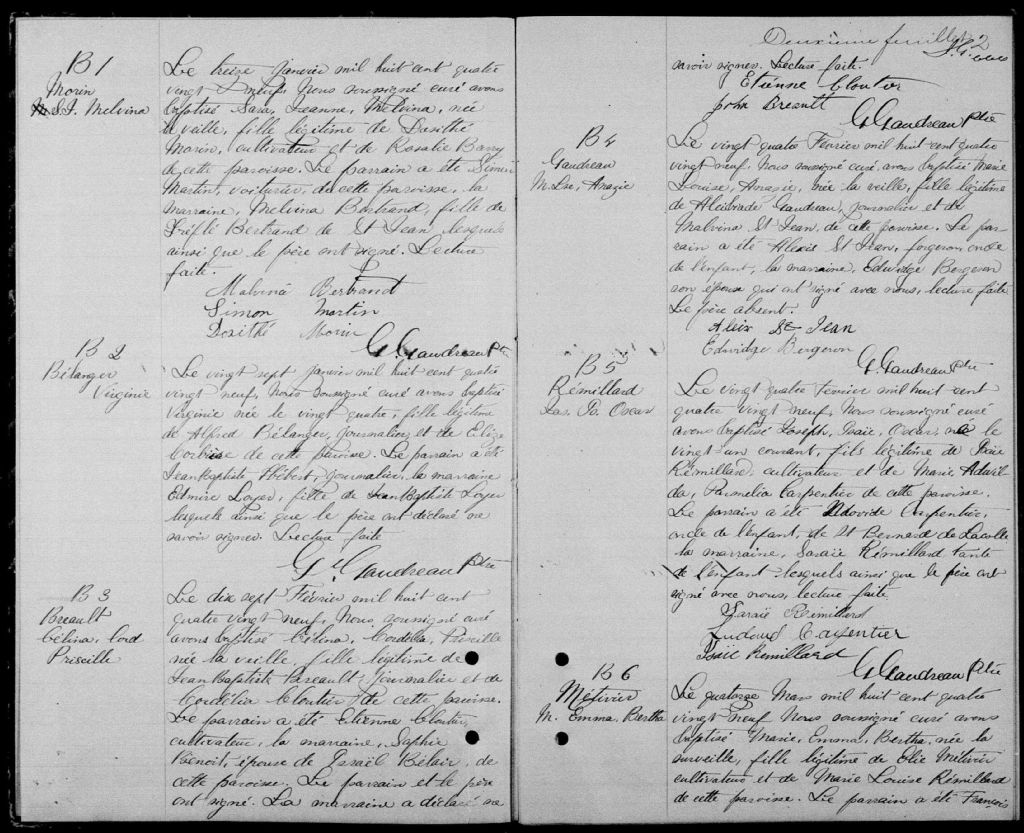 B 1
Morin
M.S.J. Melvina
Le treize Janvier mil huit cent quatre
vingt neuf, Nous soussigné curé avons
baptisé Sara, Jeanne, Melvina, née
la veille, fille légitime de Dosithé
Morin, cultivateur et de Rosalie Barry
de cette paroisse. Le parrain a été Simon
Martin, voiturier, de cette paroisse, la
marraine, Melvina Bertrand, fille de
Treflé Bertrand de St Jean lesquels
ainsi que le père ont signé. Lecture
faite.
Malvina Bertrand
Simon Martin
Dosithé Morin
G. Gaudreau Ptre
B 2
Bélanger
Virginie
Le vingt sept Janvier mil huit cent quatre
vingt neuf, Nous soussigné curé avons baptisé
Virginie née le vingt quatre, fille légitime
de Alfred Bélanger, journalier et de Eliza
de cette paroisse. Le parrain a été
Jean Baptiste Hébert, journalier, la marraine
Edmire Loyer, fille de Jean Baptiste Loyer
lesquels ainsi que le père ont déclaré ne
savoir signer. Lecture faite
G. Gaudreau Ptre
B 3
Breault
Célina, Cord
Priscille
Le dix sept Février mil huit cent
quatre vingt neuf, Nous, soussigné curé
avons baptisé Célina, Cordelia, Priscille
née la veille, fille légitime de
Jean Baptiste Breault, journalier et de
Cordélia Cloutier de cette paroisse.
Le parrain a été Etienne Cloutier,
cultivateur, la marraine, Sophie
Benoit, épouse de Israël Bélair, de
cette paroisse. Le parrain et le père
ont signé. La marraine a déclaré ne
Deuxième feuillet 2
savoir signer. Lecture faite.
Etienne Cloutier
John Breault
G. Gaudreau Ptre
B 4
Gaudreau
M. Lse, Anazie
Le vingt quatre Février mil huit cent quatre
vingt neuf, Nous soussigné curé, avons baptisé Marie
Louise, Anazie, née la veille, fille légitime
de Alcibiade Gaudreau, journalier et de
Malvina St Jean, de cette paroisse. Le par-
rain a été Alexis St Jean, forgeron, oncle
de l'enfant, la marraine, Edwidge Bergeron
son épouse qui ont signé avec nous, lecture faite
Le père absent.
Alix St Jean
Edwidge Bergeron
G. Gaudreau Ptre
B 5
Rémillard
Jos. Oscar
Le vingt quatre Février mil huit cent
quatre vingt neuf, Nous soussigné curé
avons baptisé Joseph, Isaïe, Oscar, né le
vingt un courant, fils légitime de Isaïe
Rémillard, cultivateur et de Marie Adéril
da, Parmelia Carpentier de cette paroisse.
Le parrain a été Ludovide Carpentier,
oncle de l'enfant, de St Bernard de Lacolle
la marraine, Saraïe Rémillard tante
de l'enfant lesquels ainsi que le père ont
signé avec nous, lecture faite.
Saraïe Rémillard
Ludovic Carpentier
Isaïe Remillard
G. Gaudreau Ptre
B 6
Métivier
M. Emma, Bertha
Le quatorze Mars mil huit cent quatre
vingt neuf Nous soussigné curé avons
baptisé Marie, Emma, Bertha, née la
surveille, fille légitime de Elie Métivier
cultivateur et de Marie Louise Rémillard
de cette paroisse. Le parrain a été François